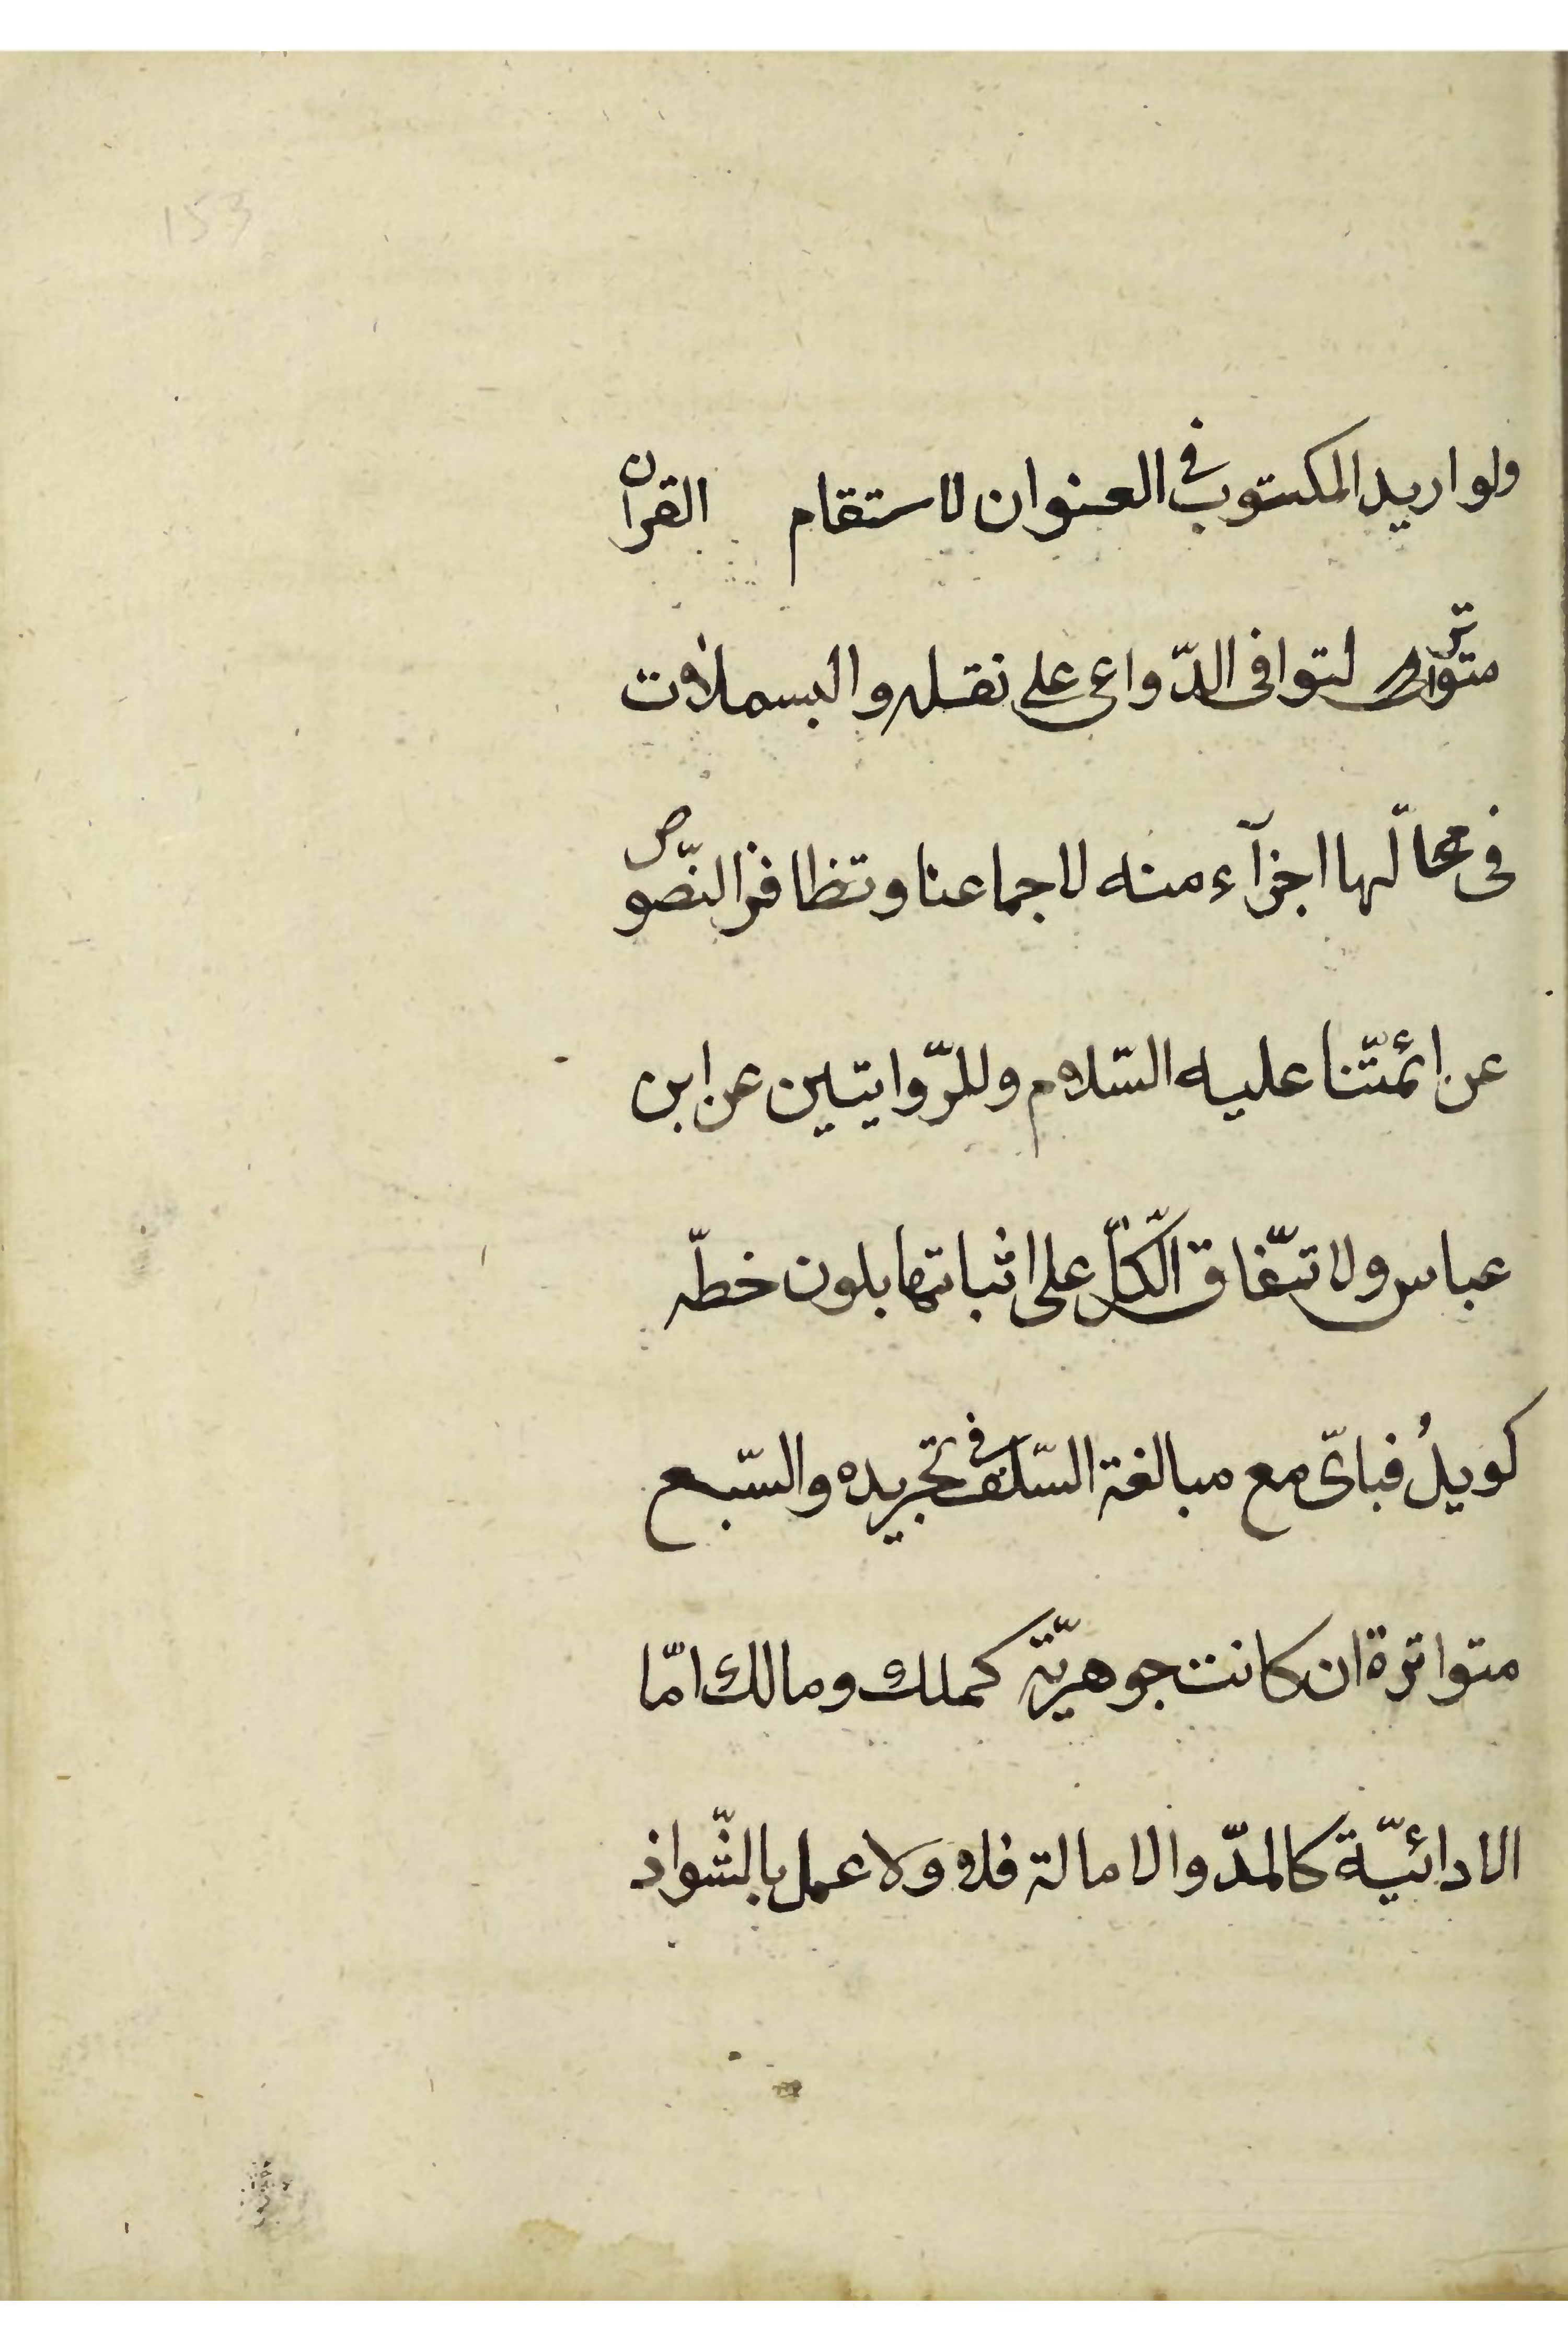 153
ولو اريد المكتوب في العنوان لاستقام القرآن
متواتر لتوافى الدّواعى على نقله والبسملات
فى محالّها اجزآء منه لاجماعنا وتظافر النّصوص
عن ائمّتنا عليه السّلام وللرّوايتين عن ابن
عباس ولاتّفاق الكلّ على اثباتها بلون خطّه
كويلُ فباىّ مع مبالغة السّلف في تجريده والسّبع
متواترة ان كانت جوهريّة كملك ومالك امّا
الادائيّة كالمدّ والامالة فلا ولا عمل بالشّواذ